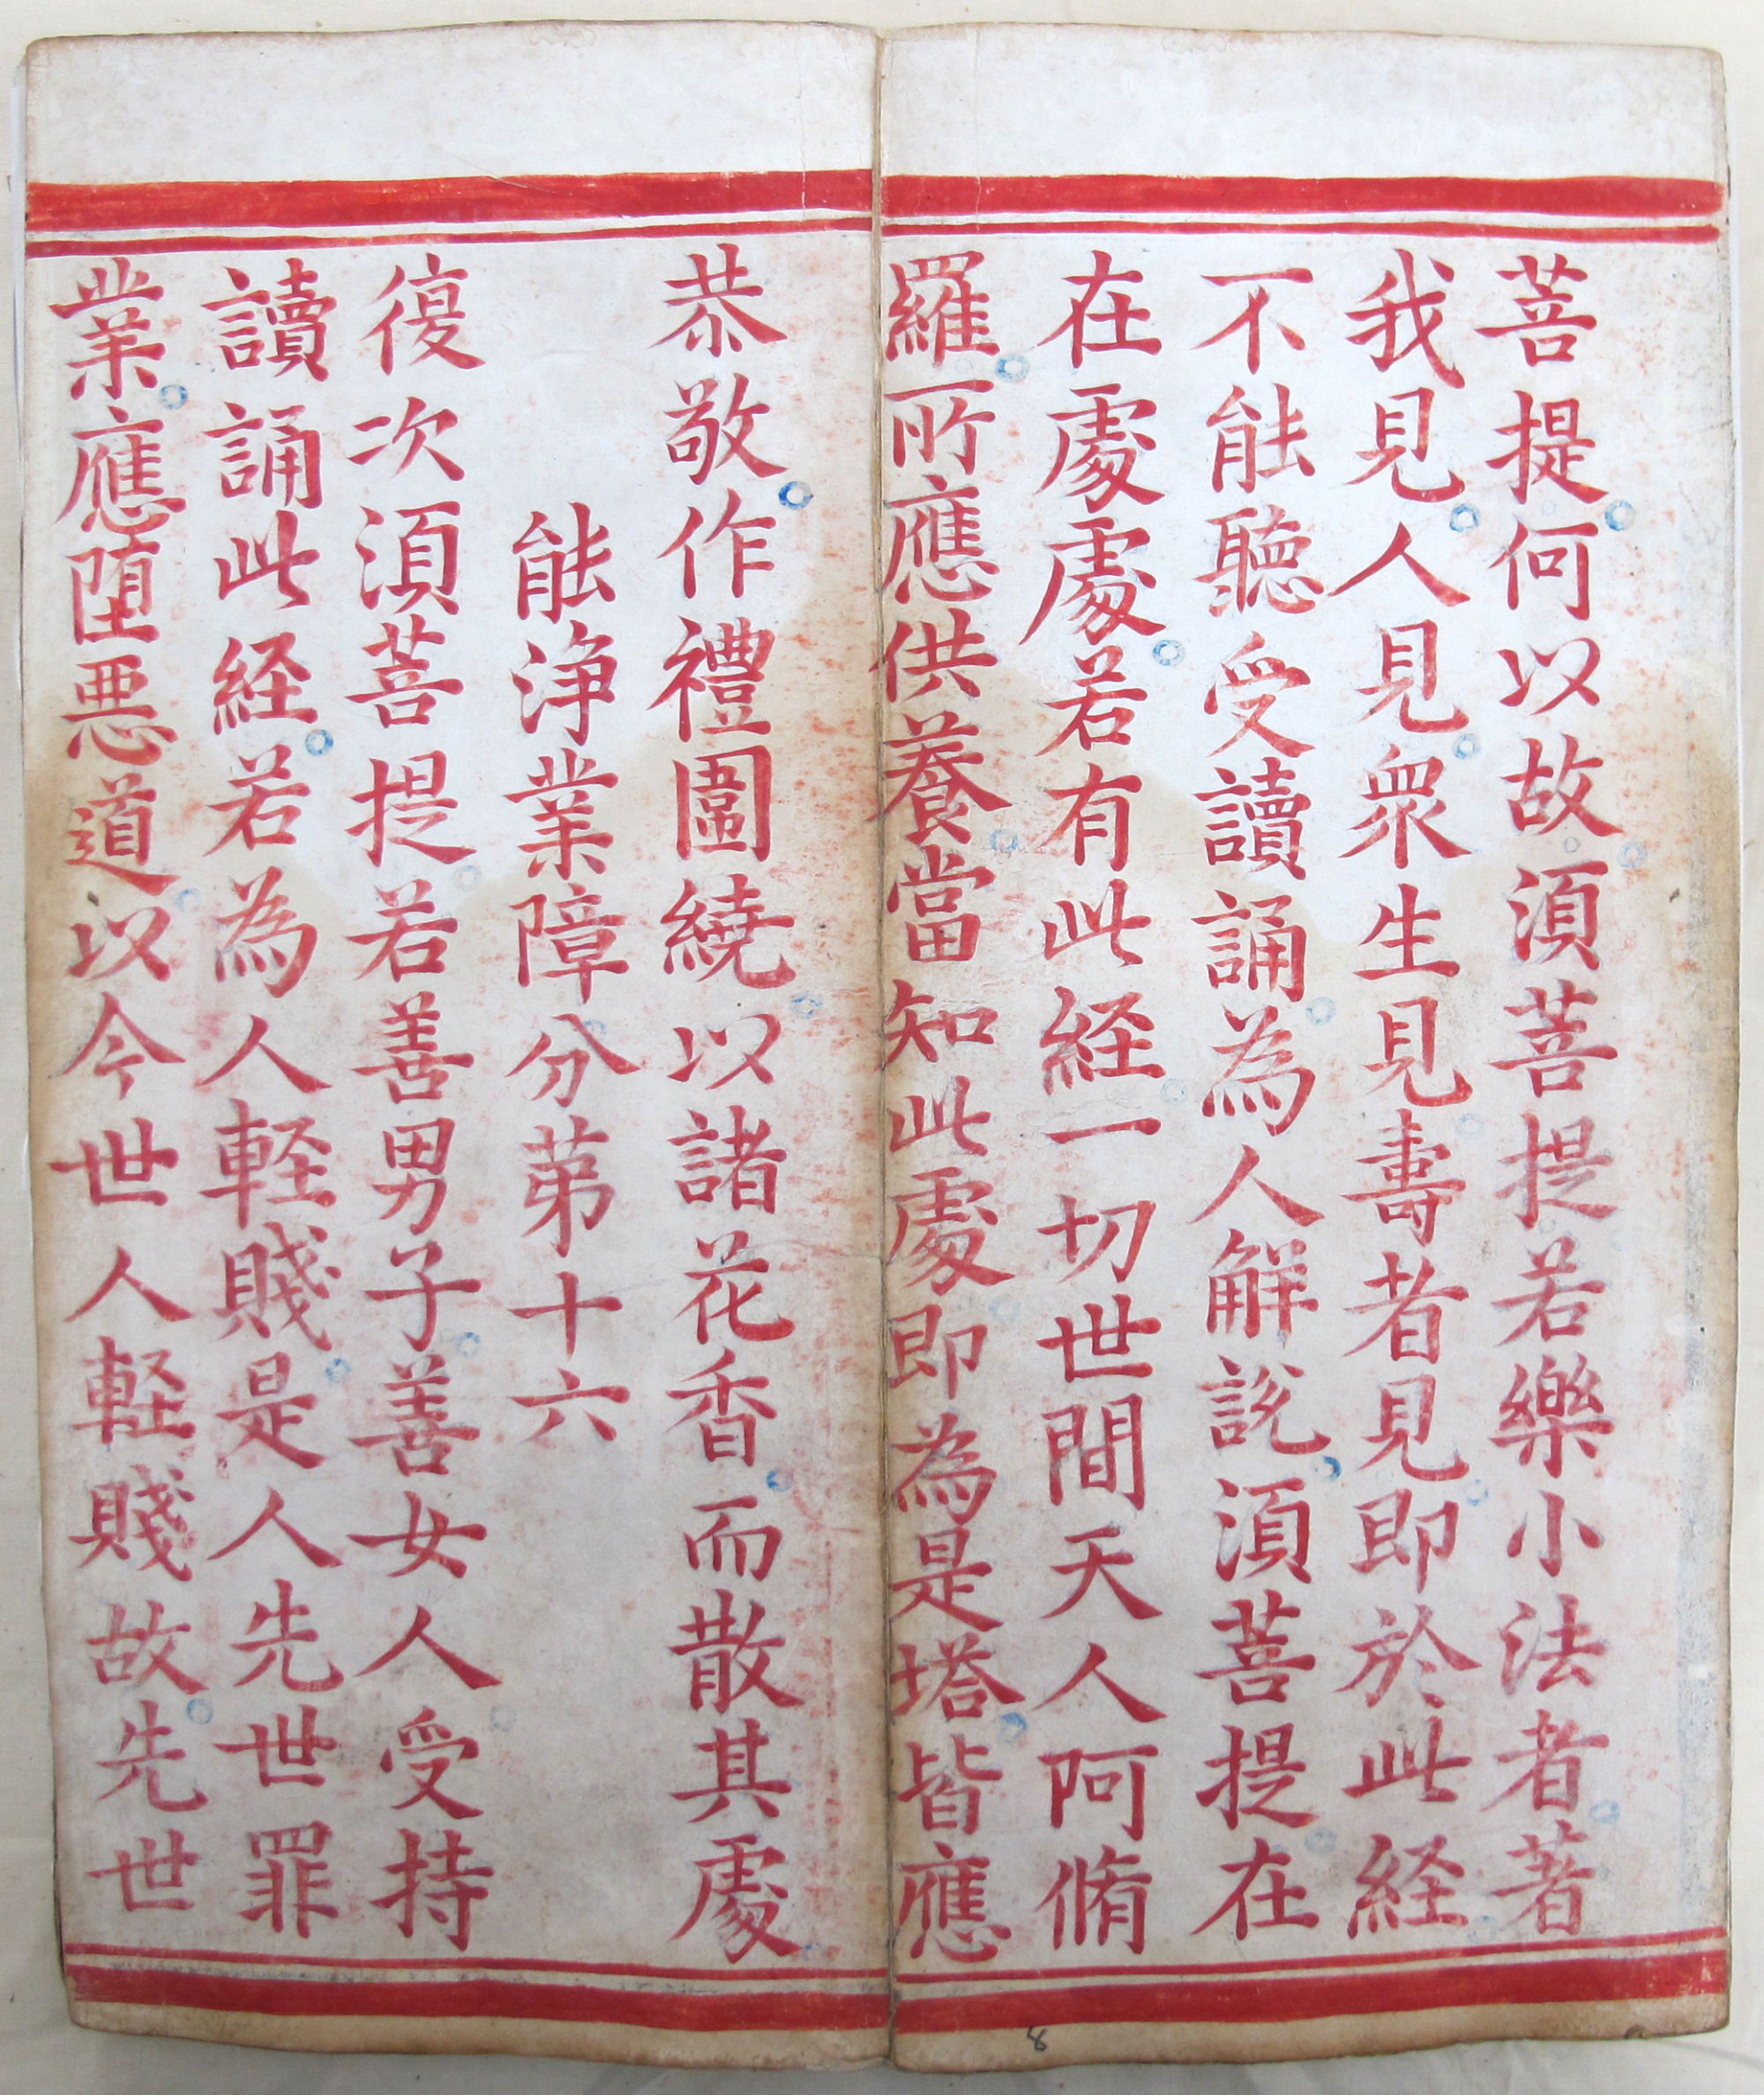 菩提何以故須菩提若樂小法者著
我見人見衆生見壽者見即於此経
不能聽受讀誦為人解説須菩提在
在處處若有此経一切世間天人阿脩
羅所應供養當知此處即為是塔皆應
恭敬作禮圍繞以諸花香而散其處
能浄業障分苐十六
復次須菩提若善男子善女人受持
讀誦此経若為人軽賤是人先世罪
業應堕悪道以今世人軽賤故先世
8